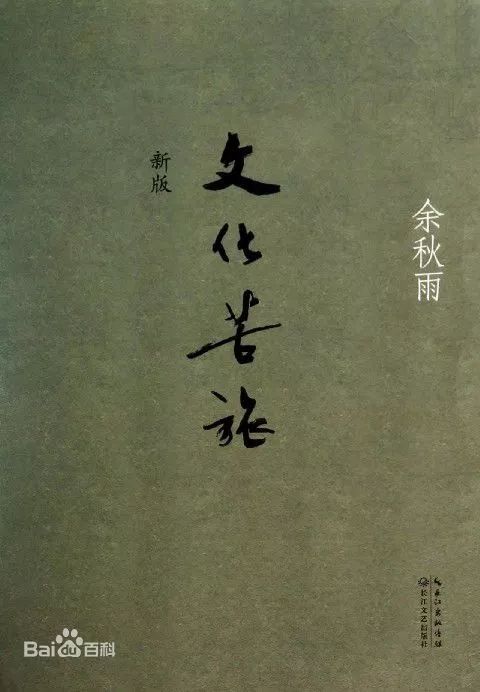 余秋雨
文化苦旅
新版
长江出版传媒
长江文艺出版社
Baidu百科